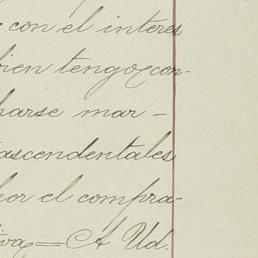 con el interes
bien tengo con-
harse mar-
ascendentales
por el compra-
tiva = A Ud.